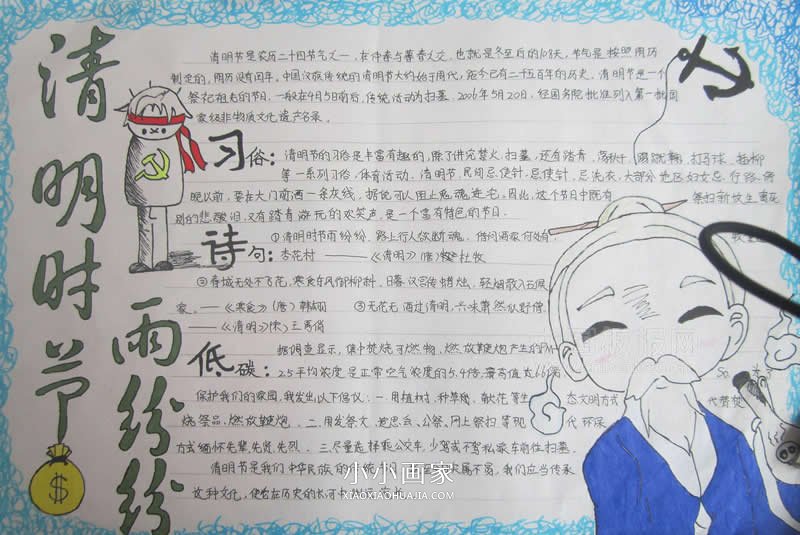 清明时节
雨纷纷
清明节是农历二十四节气之一，在仲春与暮春之交，也就是冬至后的108天，节气是按照阳历
制定的，阳历没有闰年。中国汉族传统的清明节大约始于周代，距今已有二千五百年的历史。清明节是一个
祭祀祖先的节日，一般在4月5日前后，传统活动为扫墓。2006年5月20日，经国务院批准列入第一批国
家级非物质文化遗产名录。
习俗：清明节的习俗是丰富有趣的，除了讲究禁火、扫墓，还有踏青、荡秋千、蹴鞠、打马球、插柳
等一系列习俗，体育活动。清明节，民间忌使针，忌洗衣，大部分地区妇女忌行路。傍
晚以前，要在大门前洒一条灰线，据说可以阻止鬼魂进宅。因此，这个节日中既有 祭扫新坟生离死
别的悲酸泪，又有踏青游玩的欢笑声，是一个富有特色的节日。
诗句：①清明时节雨纷纷，路上行人欲断魂。借问酒家何处有，
杏花村 ——《清明》(唐) 杜牧
②春城无处不飞花，寒食东风御柳斜。日暮汉宫传蜡烛，轻烟散入五侯
家。——《寒食》(唐) 韩翃 ③无花无酒过清明，兴味萧然似野僧。
——《清明》(宋) 王禹偁
低碳：据调查显示，集中焚烧可燃物、燃放鞭炮产生的PM
2.5平均浓度是正常空气浓度的5.4倍，最高值达
保护我们的家园，我发出以下倡议：一.用植树、种草、献花等生 态文明方式 代替焚
烧祭品、燃放鞭炮。二.用发祭文、公祭、网上祭扫等现 代环保
方式缅怀先辈、先贤、先烈。三.尽量选择乘公交车，少驾或不驾私家车前往扫墓。
清明节是我们中华民族的传统 我们应当传承
这种文化，使它在历史的长河
$
小小画家
XIAOXIAOHUAJIA.COM